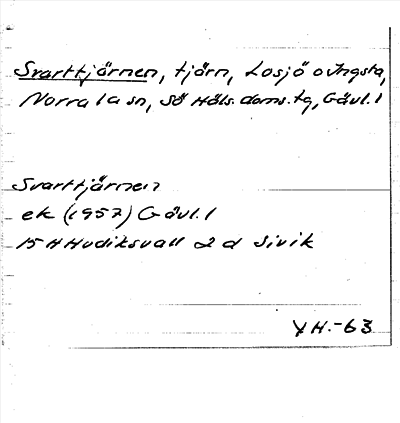 Svarttjärnen, tjärn, Losjö o Yngsta,
Norrala sn, Sö Häls. doms. tg, Gävl. l
Svarttjärnen
ek (1957) Gävl. l
15 H Hudiksvall 2 d Sivik
YH.-63